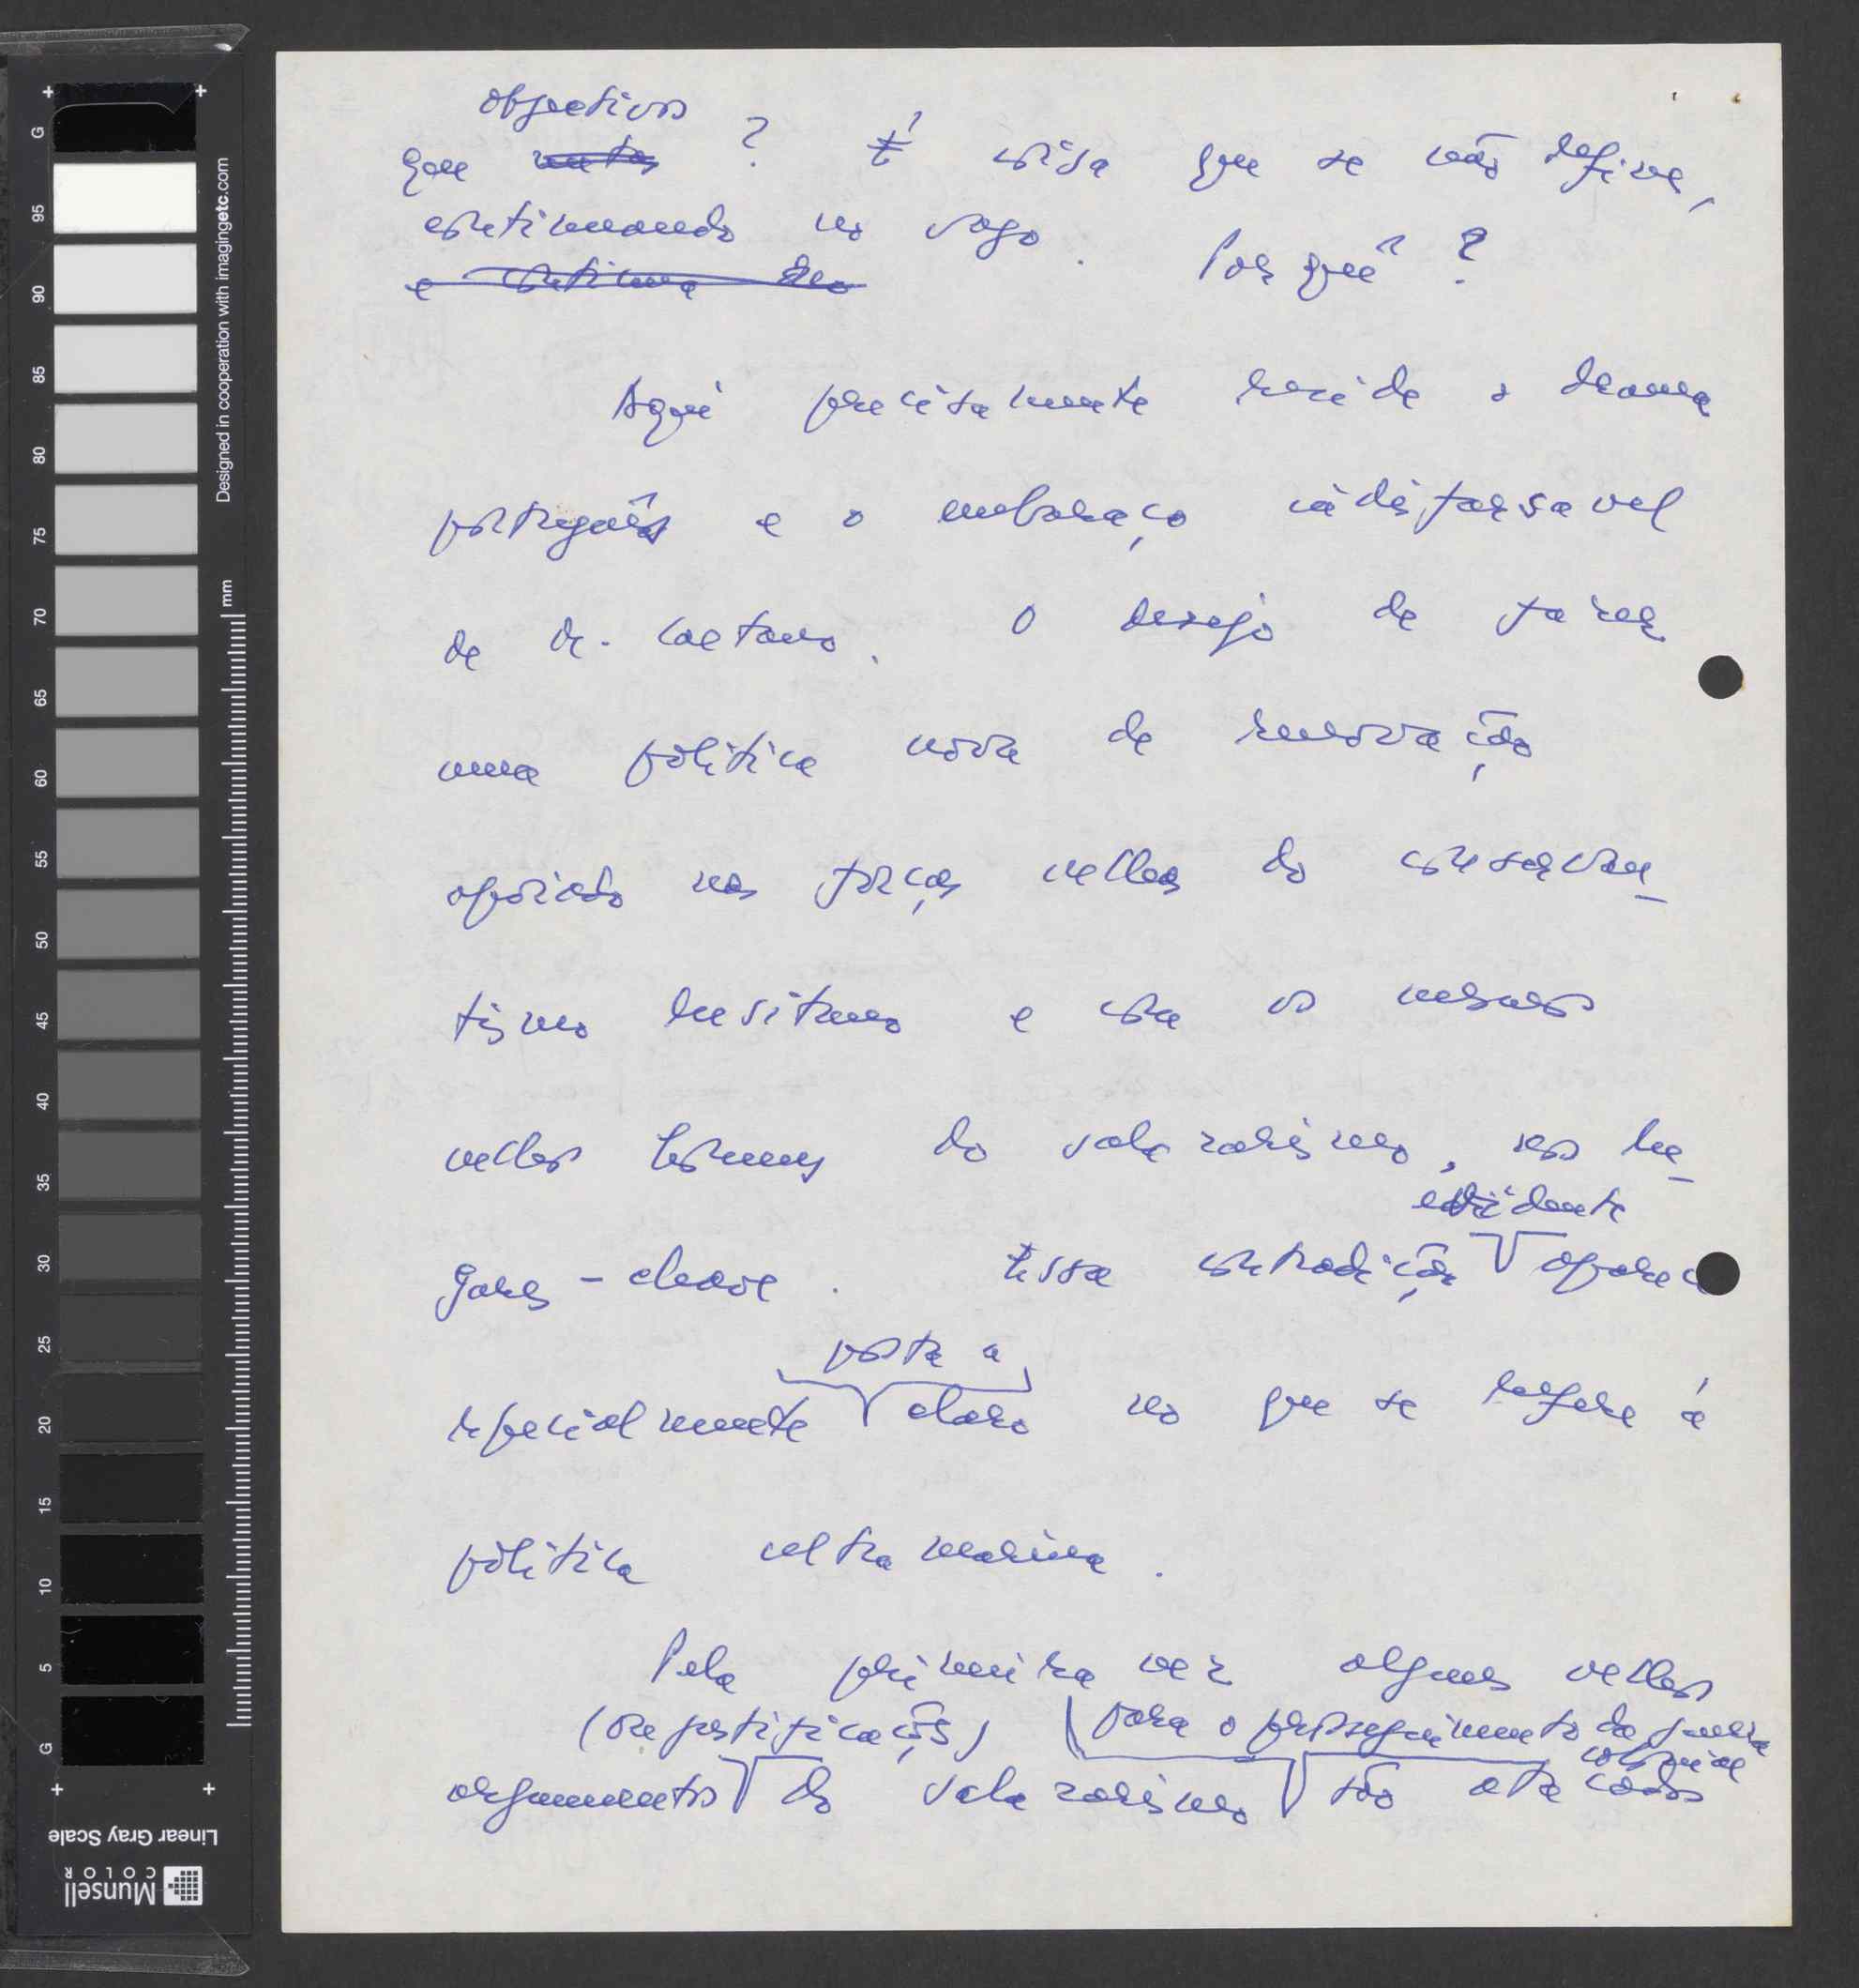 objectivos
que metas ? É coisa que se não define,
continuando no vago. Porquê ?
e continua no
Aqui precisamente reside o drama
português e o embaraço indisfarsavel
de dr. Caetano. O desejo de fazer
uma política nova de renovação
apoiado nas forças velhas do conserva-
tismo lusitano e com os mesmos
velhos homens do salazarismo, nos lu-
evidente
gares-chave. Essa contradição aparece
posta a
especialmente claro no que se refere á
política ultramarina.
Pela primeira vez alguns velhos
(ou justificações) para o prosseguimento da guerra
colonial
argumentos do salazarismo são atacados
G 95 90 85 80 75 70 65 60 55 50 45 40 35 30 25 20 15 10 5 G
Designed in cooperation with imagingetc.com
mm
Linear Gray Scale
Munsell
COLOR